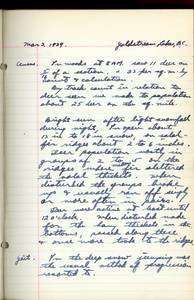 Mar. 2, 1939. Goldstream Lakes, B.C.
Census. In woods at 8 A.M. saw 11 deer on
¼ of a section, ∴ 33 per sq. mile by
count & calculation.
By track count in relation to
deer seen we made to population
about 25 deer on the sq. mile.
Bright sun after light snowfall
during night. In open about
12 in to 18 in snow on salal
for ridges about 2 to 6 inches.
Deer population mostly in
groups of 2 to 5 on the
ridges under fir sheltered
the salal thickets when
disturbed the groups broke
up & usually ran off singly
or more often in pairs.
Deer more active at least until
12 o'clock. When disturbed made
for the low thickets in the
bottoms, passed along there
& once more took to the ridges
Gait. In the deep snow jumping was
the usual method of progression
resorted to.